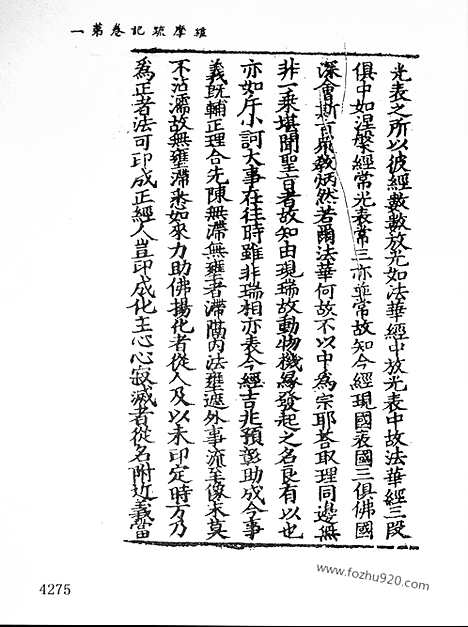 維摩疏記卷第一
光表之所以彼經數數放光如法華經中放光表中故法華經三段
俱中如涅槃經常光表常三亦並常故知今經現國表國三俱佛國
深會斯言飛教炳然若爾法華何故不以中為宗耶荅取理同邊無
非一乘堪聞聖旨者故知由現瑞故動物機緣發起之名良有以也
亦如斥小訶大事在往時雖非瑞相亦表今經吉兆預彰助成今事
義既輔正理合先陳無滯無壅者滯隔內法壅遮外事流至像末莫
不沾濡故無壅滯悉如來力助佛揚化者從人及以未印定時方乃
為正者法可印成正經人豈印成化主心心寂滅者從名附近義當
4275
www.fozhu920.com